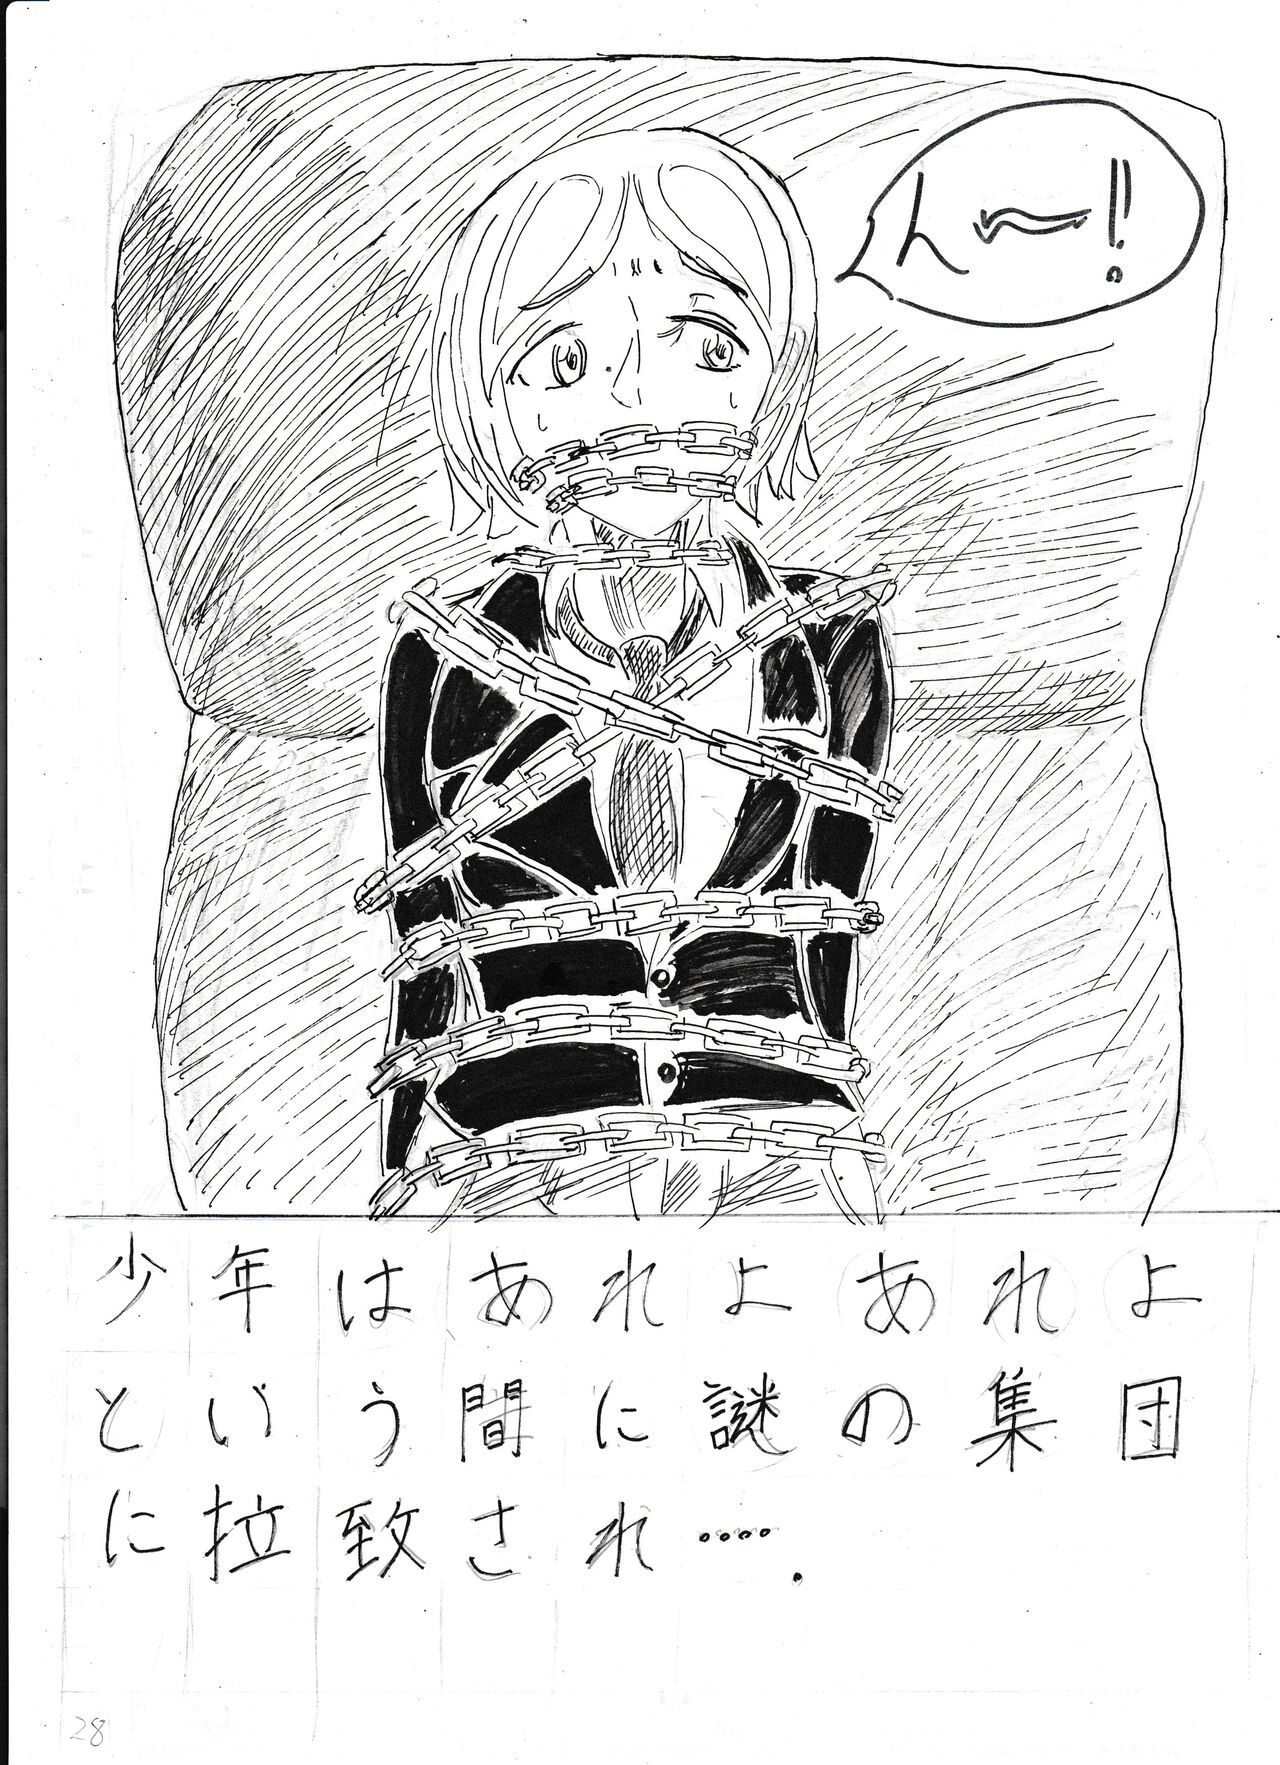 んー!!
少年はあれよあれよ
という間に謎の集団
に拉致され‥‥.
28